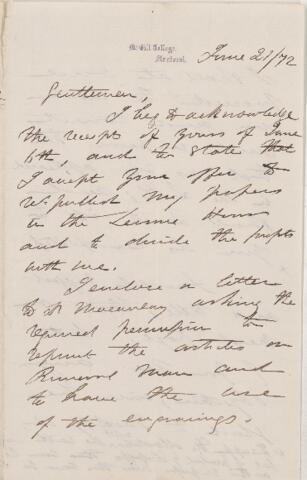 McGill College,
Montreal.
June 21/72
Gentlemen,
I beg to acknowledge
the receipt of yours of June
6th, and to state that
I accept your offer to
republish my papers
in the Leisure Hour
and to divide the profits
with me.
I enclose a letter
to Dr Macaulay asking the
required permission to
reprint the articles on
Primeval Man and
to have the use
of the engravings.